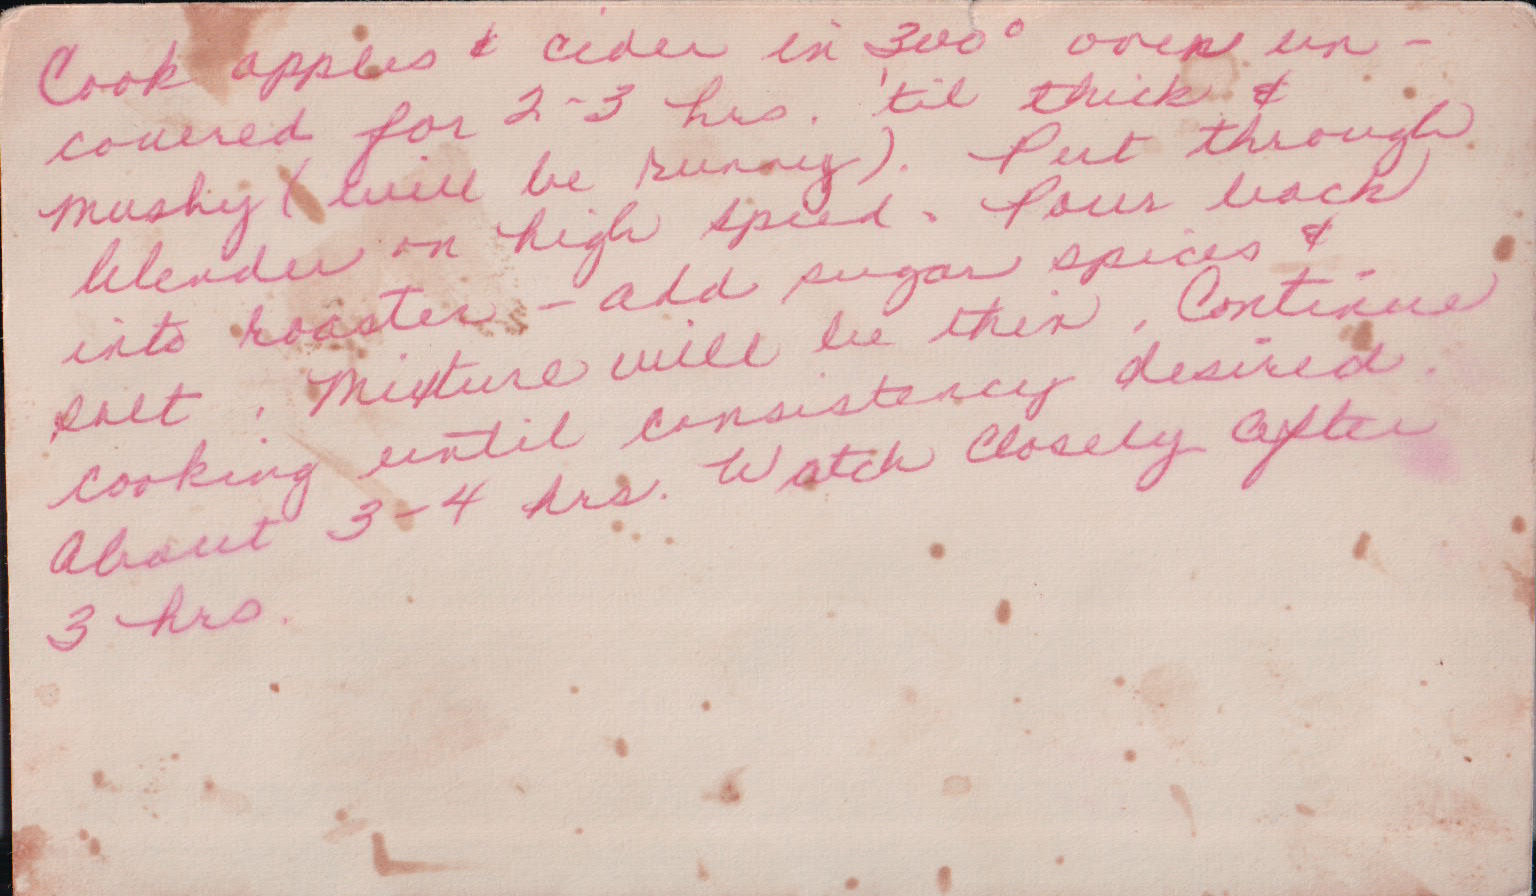 Cook apples & cider in 300° oven un-
covered for 2-3 hrs. 'til thick &
mushy (will be runny). Put through
blender on high speed. Pour back
into roaster - add sugar spices &
salt. Mixture will be thin. Continue
cooking until consistency desired.
About 3-4 hrs. Watch closely after
3 hrs.